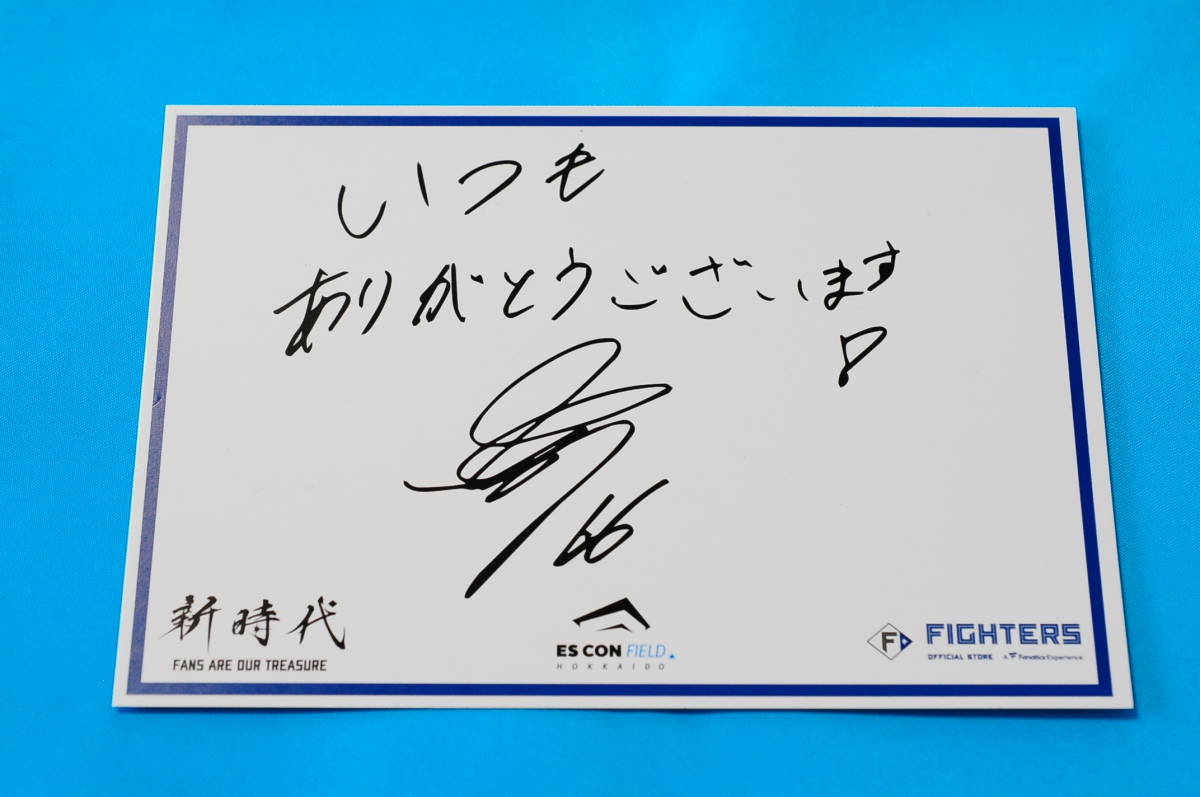 いつも
ありがとうございます
!
66
新時代
FANS ARE OUR TREASURE
ES CON FIELD
HOKKAIDO
F
FIGHTERS
OFFICIAL STORE A Fanatics Experience